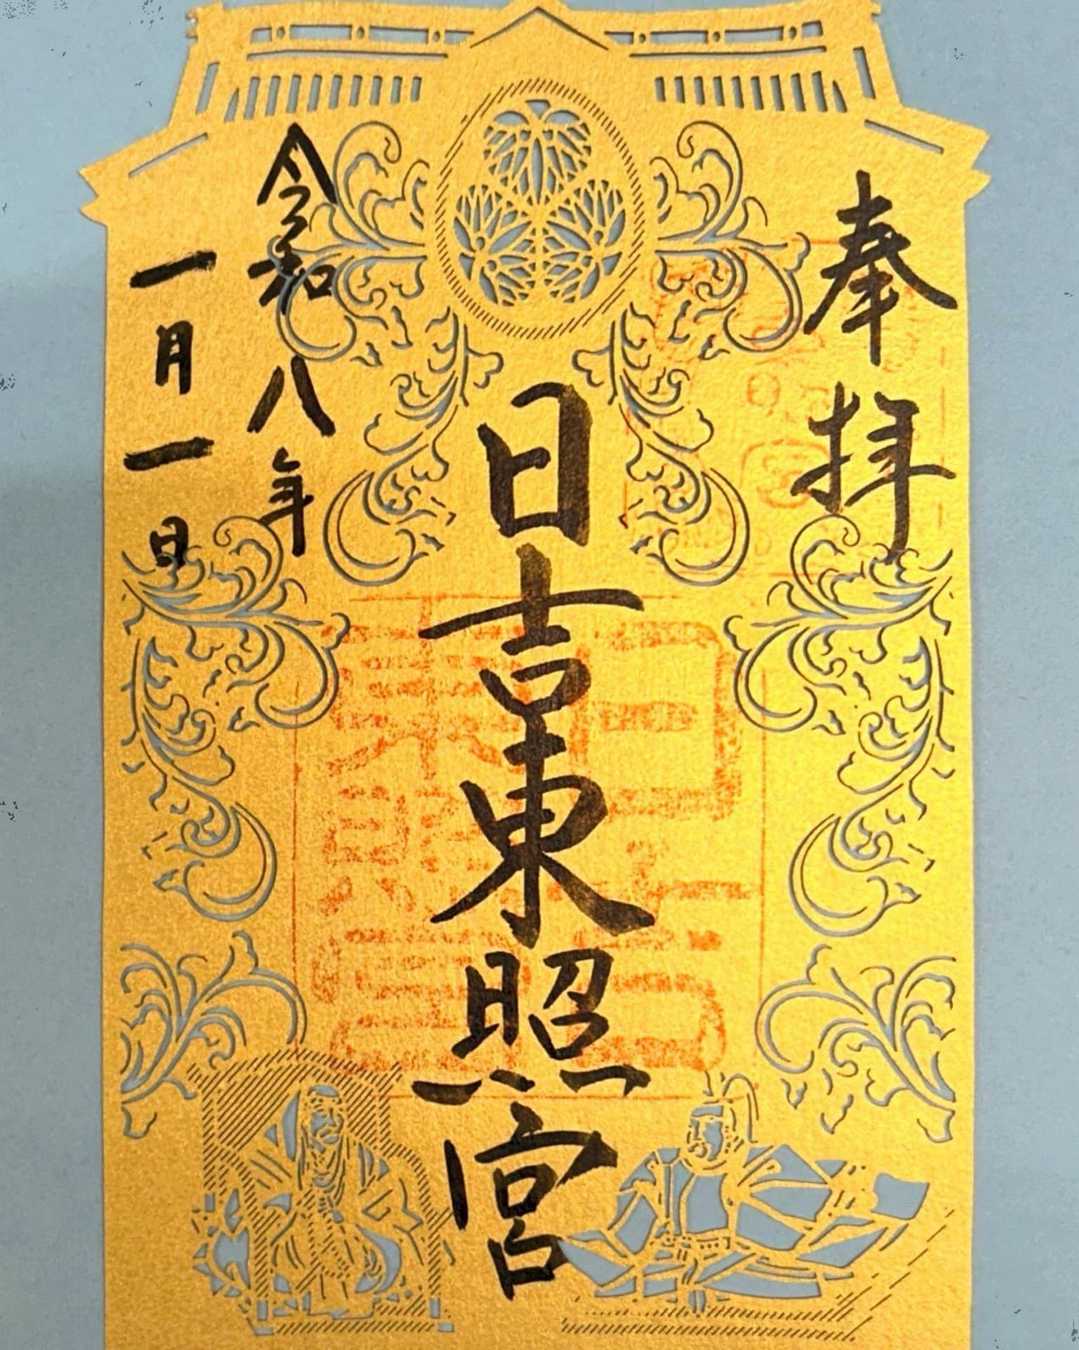 奉拝
日吉東照宮
令和八年
一月一日